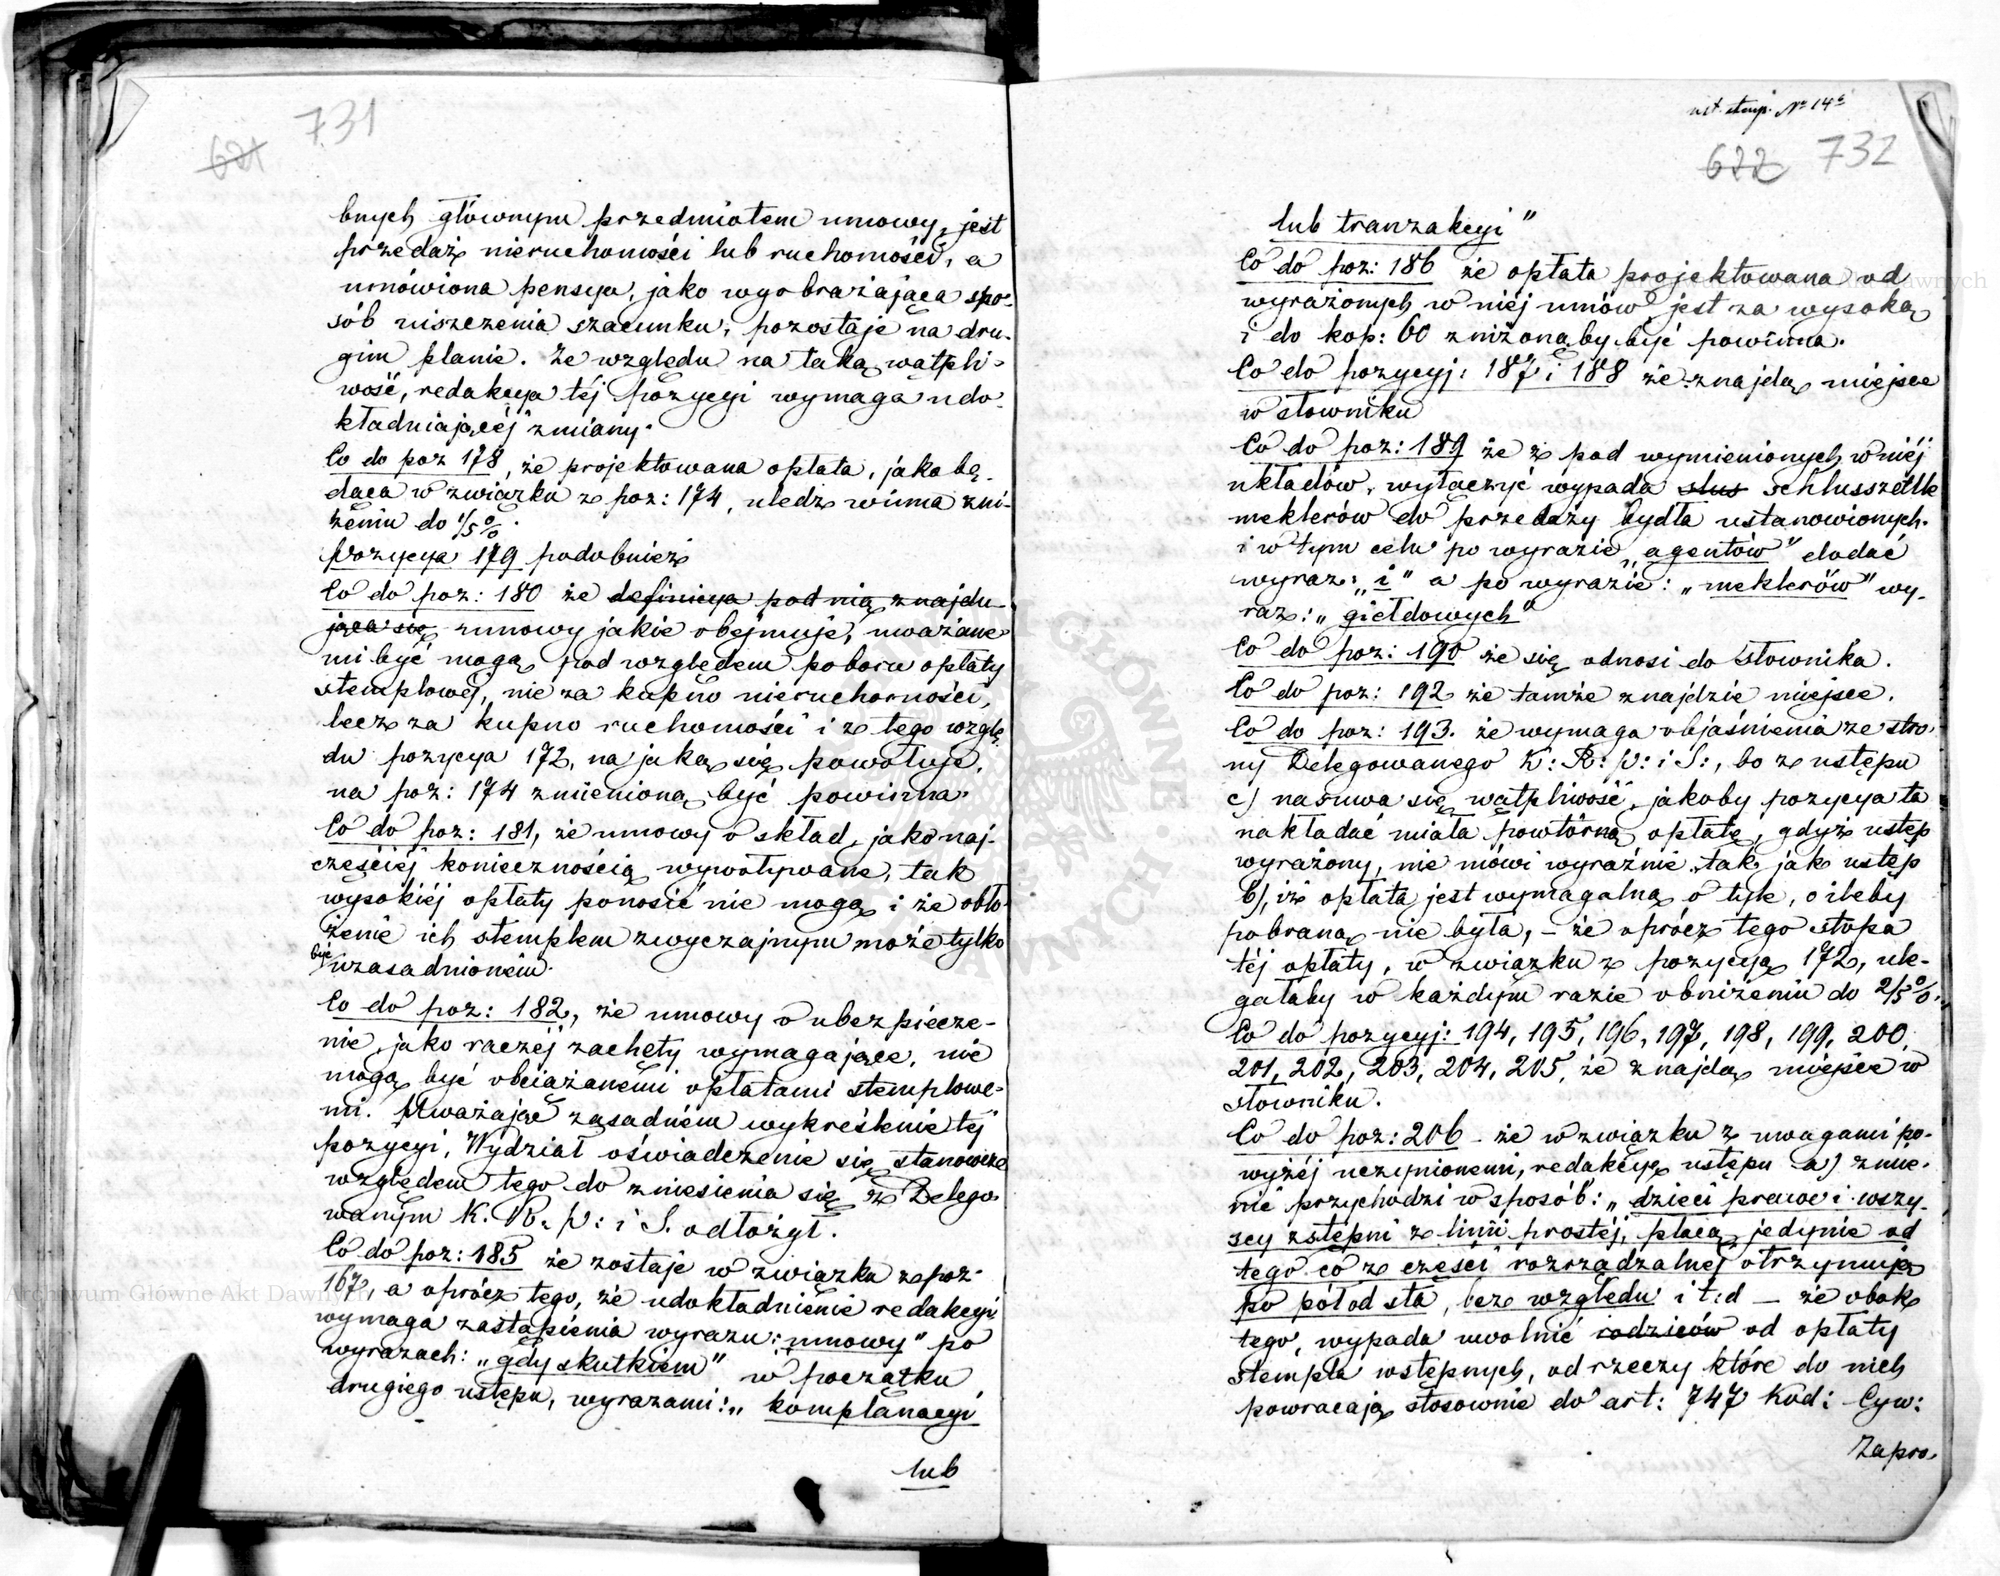 731
621
bnych głównym przedmiotem umowy, jest
przedaż nieruchomości lub ruchomości, a
umówiona pensya, jako wyobrażająca spo-
sób uiszczenia szacunku, pozostaje na dru-
gim planie. Ze względu na taką wątpli-
wość, redakcya téj pozycyi wymaga udo-
kładniającéj zmiany.
Co do poz 178, że projektowana opłata, jako bę-
dąca w związku z poz: 174, uledz winna zni-
żeniu do 1/5 %.
Pozycya 179 podobnież
Co do poz: 180 że definicya pod nią znajdu-
jąca się umowy jakie obejmuje, uważane-
mi być mogą pod względem poboru opłaty
stemplowéj, nie za kupno nieruchomości,
lecz za kupno ruchomości i z tego wzglę-
du pozycya 172, na jaką się powołuje,
na poz: 174 zmienioną być powinna.
Co do poz: 181, że umowy o skład, jako naj-
częściéj koniecznością wywoływane, tak
wysokiéj opłaty ponosić nie mogą i że obło-
żenie ich stemplem zwyczajnym może tylko
być uzasadnioném.
Co do poz: 182, że umowy o ubezpiecze-
nie, jako raczéj zachęty wymagające, nie
mogą być obciążanemi opłatami stemplowe-
mi. Uważając zasadném wykreślenie téj
pozycyi, Wydział oświadczenie się stanowcze
względem tego do zniesienia się z Delego-
wanym K. R. P: i S. odłożył.
Co do poz: 185 że zostaje w związku z poz.
167, a oprócz tego, że udokładnienie redakcyi
wymaga zastąpienia wyrazu: „umowy" po
wyrazach: „gdy skutkiem" w początku
drugiego ustępu, wyrazami: „komplanacyi
lub
ust. stemp. № 14
622 732
lub tranzakcyi"
Co do poz: 186 że opłata projektowana od
wyrażonych w niéj umów jest za wysoką
i do kop: 60 zniżoną by być powinna.
Co do pozycyj: 187 i 188 że znajdą miejsce
w słowniku
Co do poz: 189 że z pod wymienionych w niéj
układów, wyłączyć wypada slus schlusszettle
meklerów do przedaży bydła ustanowionych.
i w tym celu po wyrazie „agentów" dodać
wyraz: „i" a po wyrazie: „meklerów" wy-
raz: „giełdowych"
Co do poz: 190 że się odnosi do słownika.
Co do poz: 192 że tamże znajdzie miejsce.
Co do poz: 193. że wymaga objaśnienia ze stro-
ny Delegowanego K: R: P: i S:, bo z ustępu
c) nasuwa się wątpliwość, jakoby pozycya ta
nakładać miała powtórną opłatę, gdyż ustęp
wyrażony, nie mówi wyraźnie tak, jak ustęp
b), iż opłata jest wymagalną o tyle, o ileby
pobraną nie była, – że oprócz tego stopa
téj opłaty, w związku z pozycyą 172, ule-
gałaby w każdym razie obniżeniu do 2/5 %.
Co do pozycyj: 194, 195, 196, 197, 198, 199, 200,
201, 202, 203, 204, 205, że znajdą miejsce w
słowniku.
Co do poz: 206 – że w związku z uwagami po-
wyżéj uczynionemi, redakcyę ustępu a) zmie-
nić przychodzi w sposób: „dzieci prawe i wszy-
scy zstępni z linii prostéj, płacą jedynie od
tego co z części rozrządzalnéj otrzymują
po pół od sta, bez względu i t:d – że obok
tego, wypada uwolnić rodziców od opłaty
stempla wstępnych, od rzeczy które do nich
powracają stosownie do art: 747 Kod: Cyw:
Zapro-
Archiwum Główne Akt Dawnych